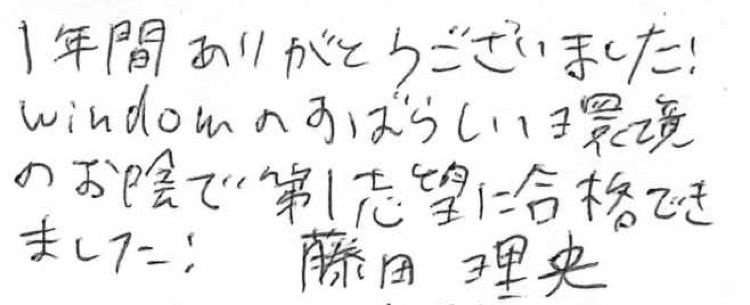 1年間ありがとうございました!
windomのすばらしい環境
のお陰で第1志望に合格でき
ました! 藤田理央